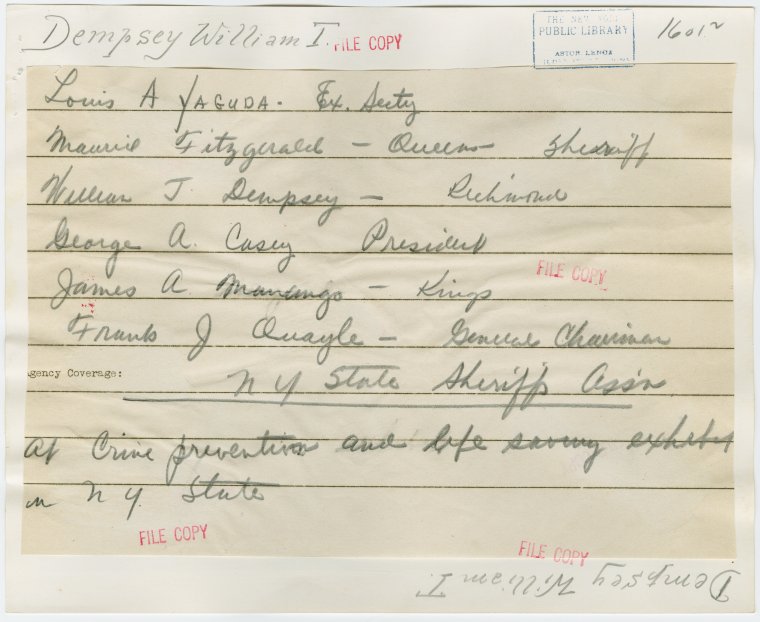 Dempsey William I.
FILE COPY
THE NEW YORK
PUBLIC LIBRARY
ASTOR, LENOX
1601~
Louis A YAGUDA - Ex. Secty
Maurice Fitzgerald - Queens Sheriff
William J. Dempsey - Richmond
George A. Casey President
FILE COPY
James A. Mangano - Kings
Frank J Quayle - General Chairman
gency Coverage:
N Y State Sheriffs Ass'n
At Crime prevention and life saving exhibit
in N Y. State
FILE COPY
FILE COPY
Dempsey William I.